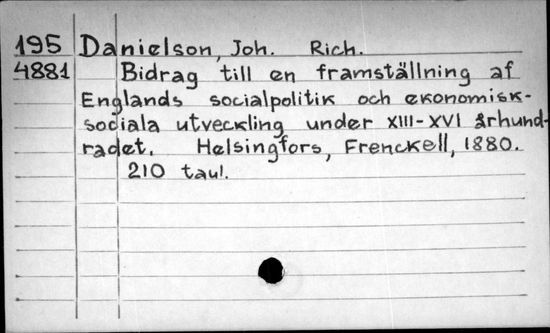 195 Danielson, Joh. Rich.
4881 Bidrag till en framställning af
Englands socialpolitik och ekonomisk-
sociala utveckling under XIII-XVI århund-
radet. Helsingfors, Frenckell, 1880.
210 taul.